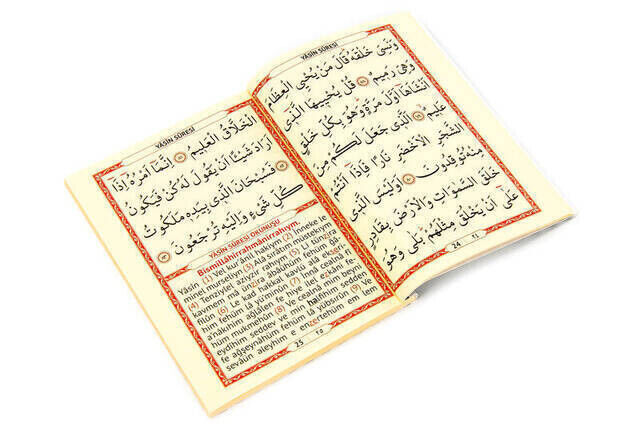 YÂSİN SÛRESİ
وَنَسِىَ خَلْقَهُ قَالَ مَنْ يُحْيِى الْعِظَامَ
وَهِىَ رَمِيمٌ ﴿٧٨﴾ قُلْ يُحْيِيهَا الَّذِى
اَنْشَاَهَا اَوَّلَ مَرَّةٍ وَهُوَ بِكُلِّ خَلْقٍ
عَلِيمٌ ﴿٧٩﴾ اَلَّذِى جَعَلَ لَكُمْ مِنَ
الشَّجَرِ الْاَخْضَرِ نَارًا فَاِذَا اَنْتُمْ
مِنْهُ تُوقِدُونَ ﴿٨٠﴾ اَوَلَيْسَ الَّذِى
خَلَقَ السَّمٰوَاتِ وَالْاَرْضَ بِقَادِرٍ
عَلٰى اَنْ يَخْلُقَ مِثْلَهُمْ بَلٰى وَهُوَ
24 ٢٤
YÂSİN SÛRESİ
الْخَلَّاقُ الْعَلِيمُ ﴿٨١﴾ اِنَّمَا اَمْرُهُ اِذَا
اَرَادَ شَيْئًا اَنْ يَقُولَ لَهُ كُنْ فَيَكُونُ
﴿٨٢﴾ فَسُبْحَانَ الَّذِى بِيَدِهِ مَلَكُوتُ
كُلِّ شَىْءٍ وَاِلَيْهِ تُرْجَعُونَ ﴿٨٣﴾
YÂSİN SÛRESİ OKUNUŞU
Bismillâhirrahmânirrahıym.
Yâsîn (1) Vel kur'ânil hakiym (2) İnneke le
minel murseliyn (3) Alâ sırâtım müstekiym
(4) Tenziylel aziyzir rahıym (5) Li tünzira
kavmem mâ ünzira âbâühüm fehüm ğâ-
filûn (6) Le kad hakkal kavlü alâ ekseri-
him fehüm lâ yü'minûn (7) İnnâ cealnâ fî
a'nâkıhim ağlâlen fe hiye ilel ezkâni fe-
hüm mukmehûn (8) Ve cealnâ mim beyni
eydîhim seddev ve min halfihim sedden
fe ağşeynâhüm fehüm lâ yübsirûn (9) Ve
sevâün aleyhim e enzertehüm em lem
25 ٢٥